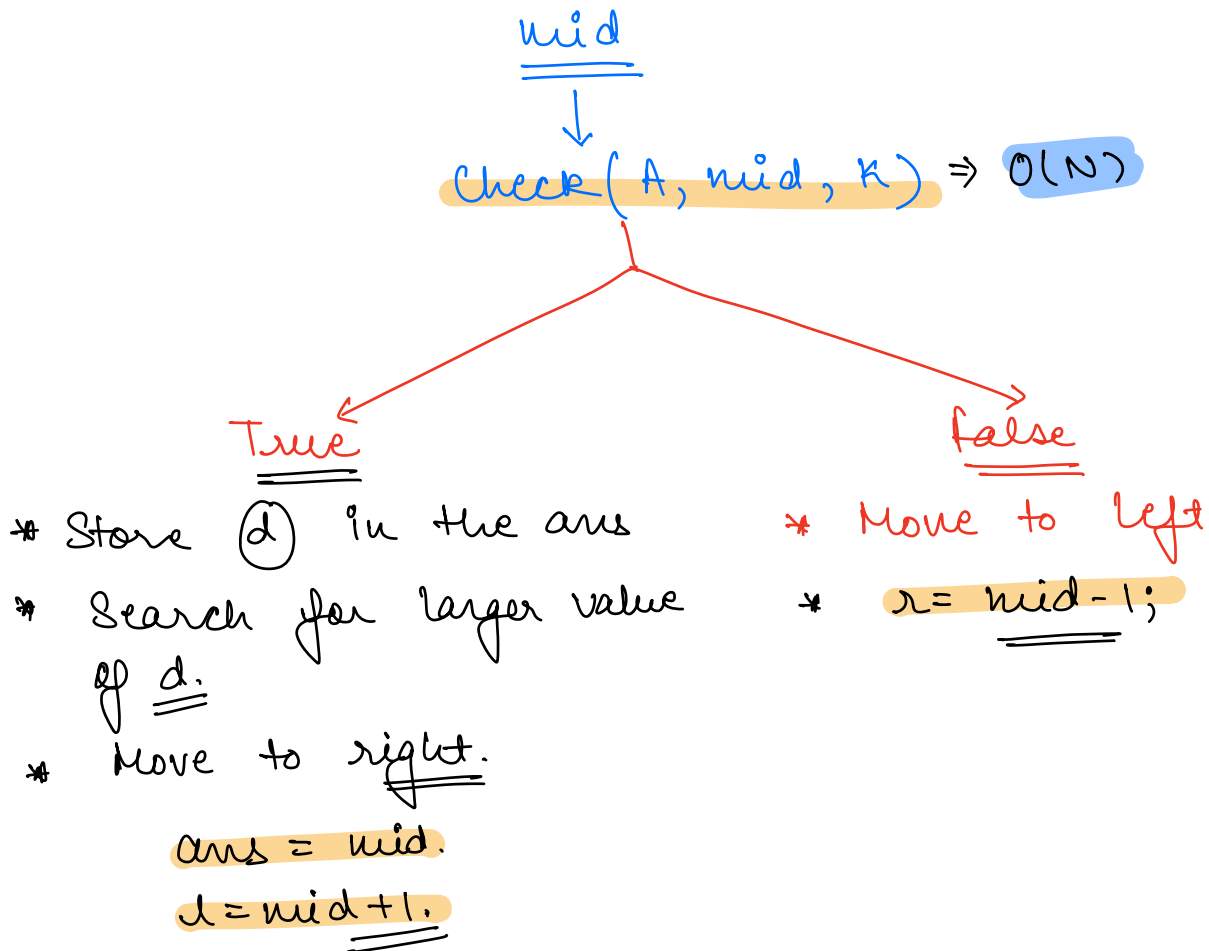 mid
Check(A, mid, K) ⇒ O(N)
True
* Store d in the ans
* Search for larger value
of d.
* Move to right.
ans = mid.
l = mid+1.
False
* Move to left
* r = mid-1;